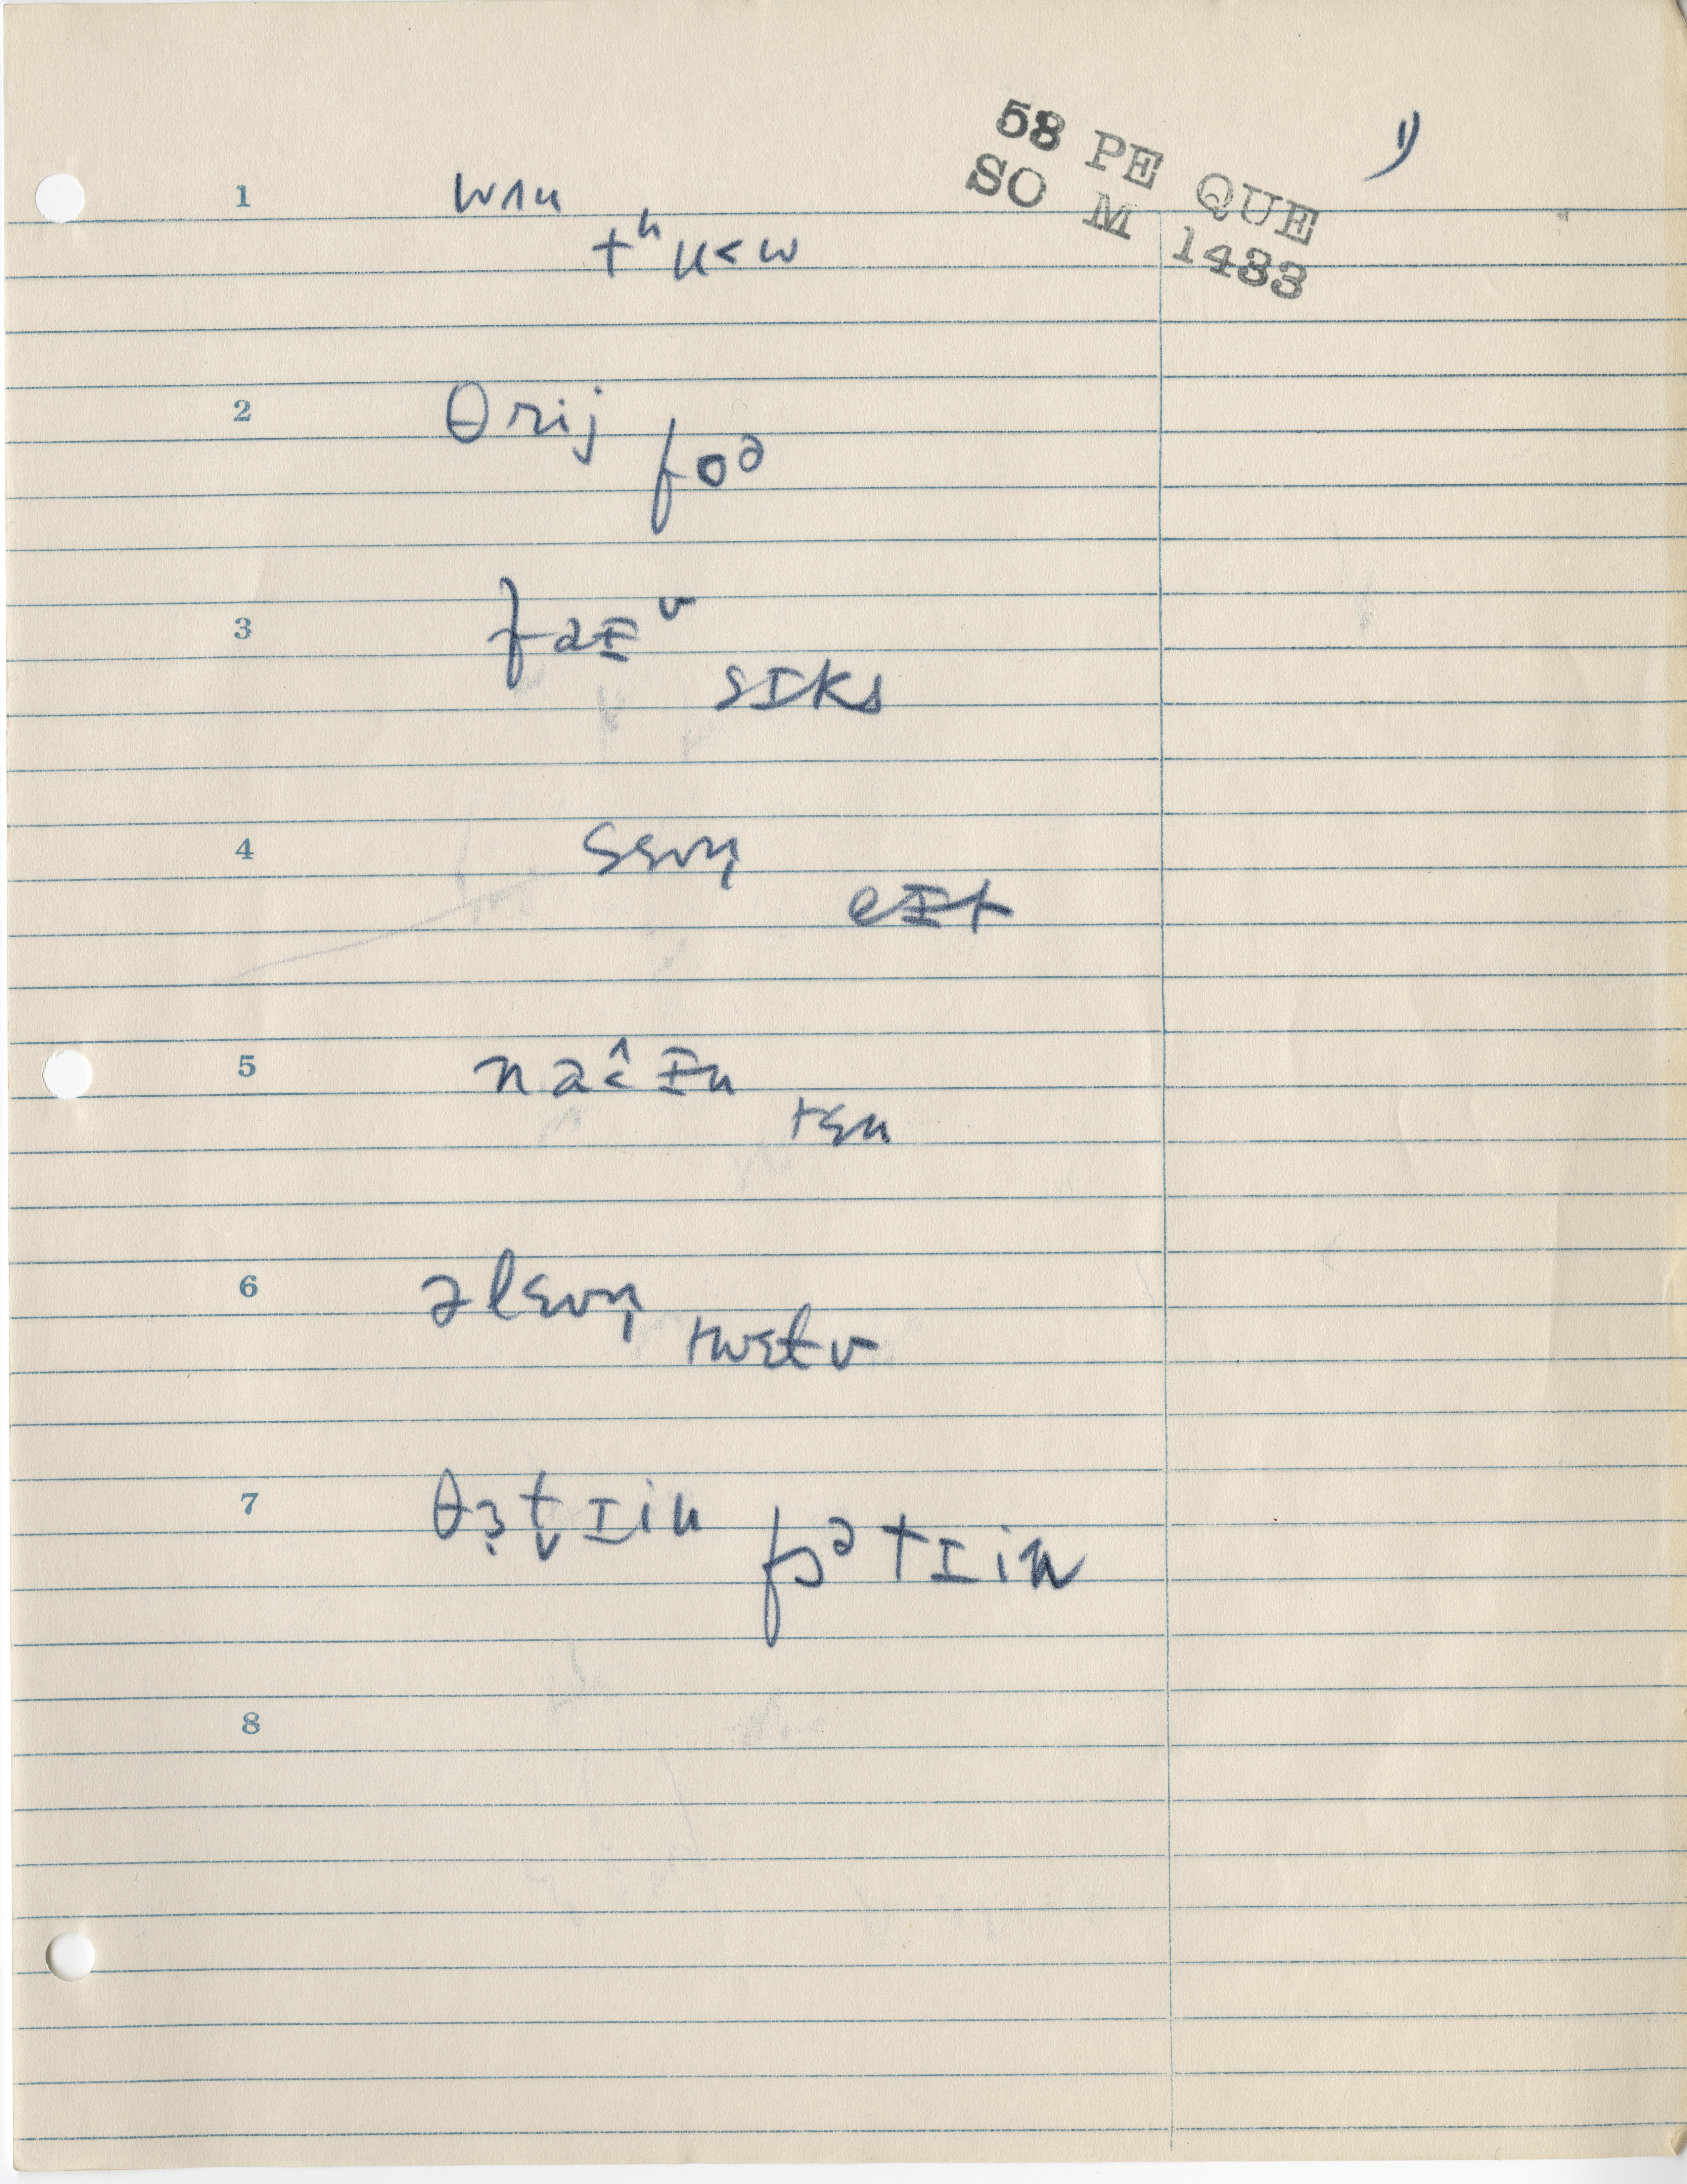 58 PE QUE
SO M 1483
1)
1 wʌn
tʰʉ˂w
2 θrij
foᵊ
3 faɪᵛ
sɪks
4 sɛvn̩
eɪt
5 naˆ˂ɪn
tɛn
6 əlɛvn̩
twɛlv
7 θɜt̬ɪin
fɔᵊtɪin
8